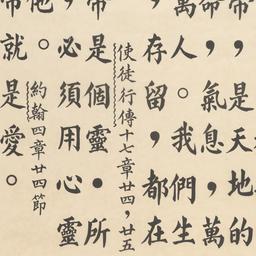 帝,是天地的
萬命,氣息,萬
人。我們生
存留,都在
使徒行傳十七章廿四,廿五
帝是個靈.所
必須用心靈
他。
約翰四章廿四節
帝就是愛。